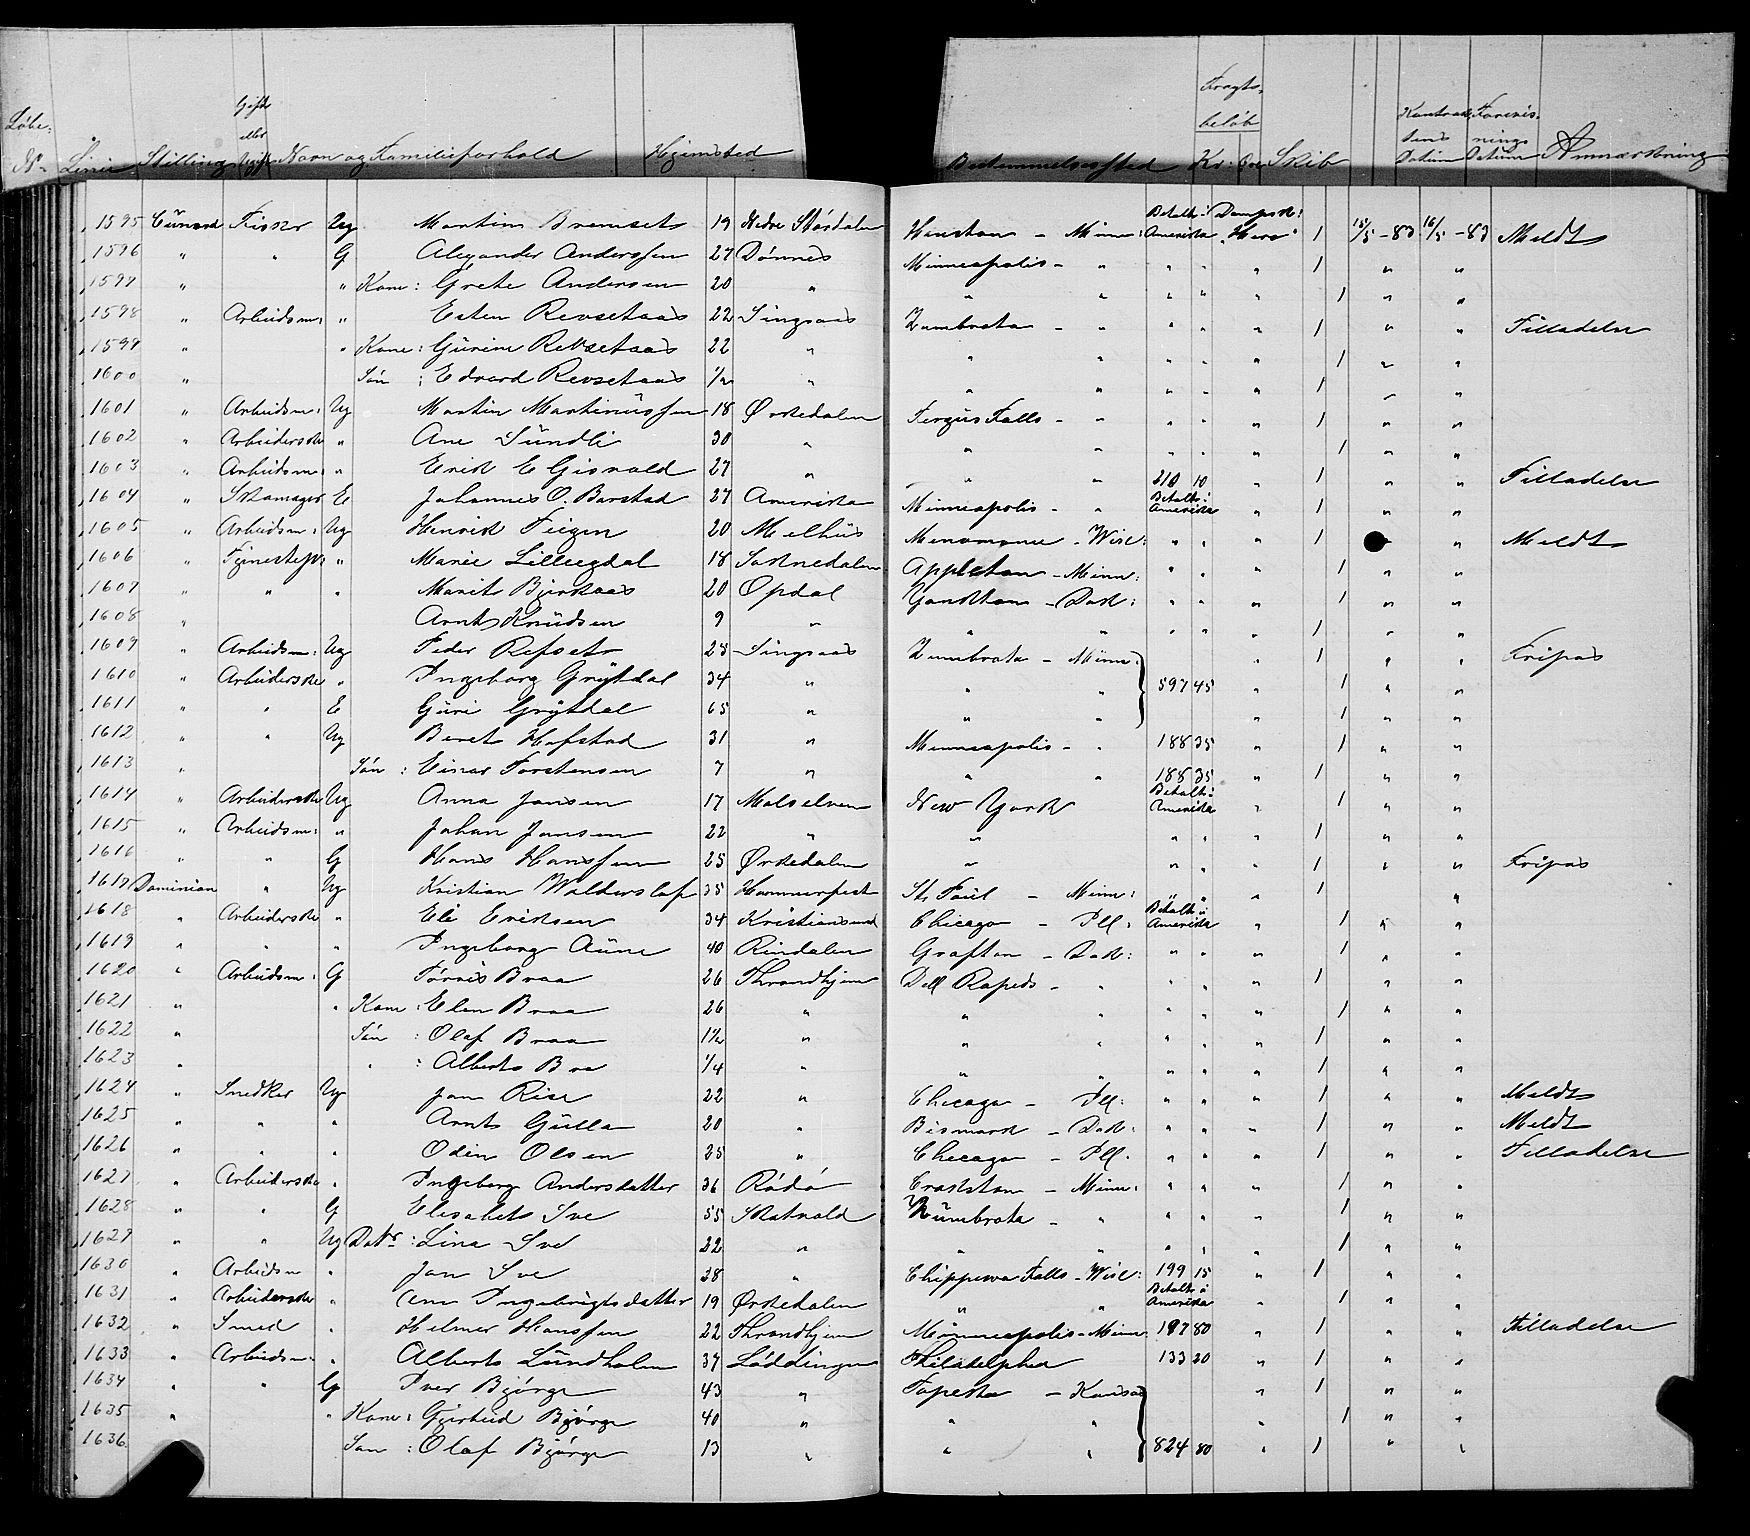 Løbe- N. Linie Stilling Gift eller Ugift Navn og Familieforhold Hjemsted Bestemmelsessted Fragtbeløb Kr: Øre Skib Kontraktens Datum Datum Anmærkning
1595 Cunard Fisker Ug Martin Bremset 19 Nedre Størdalen Houston - Minn: Betalt i Amerika Dampsk: "Hero" 1 15/5-83 16/5-83 Meldt
1596 " " G Alexander Anderssen 27 Dønnes Minneapolis - " " " " 1 " "
1597 " " Kone: Grete Andersen 20 " " " " " " 1 " "
1598 " Arbeidsm: " Esten Revsetaas 22 Singsaas Zumbrota - " " " " 1 " " Tilladelse
1599 " " Kone: Gurine Revsetaas 22 " " " " " 1 " "
1600 " Søn: Edvard Revsetaas 1/2 " " " " " " 1 " "
1601 " Arbeidsm: Ug Martin Martinussen 18 Ørkedalen Fergus Falls - " " " " 1 " "
1602 " Arbeiderske " Ane Sundli 30 " " " " " 1 " "
1603 " Arbeidsm: " Erik E Gisvold 27 " " " 210 10 " 1 " " Tilladelse
1604 " Skomager E Johannes O. Barstad 27 Amerika Minneapolis - " Betalt i Amerika " 1 " "
1605 " Arbeidsm: Ug Henrik Feigen 20 Melhus Menomonie - Wisc: " " " 1 " Meldt
1606 " Tjenestep: " Marie Lilleegdal 18 Soknedalen Appleton - Minn: " " " 1 " "
1607 " " " Marit Bjerkaas 20 Opdal Yankton - Dak: " " " 1 " "
1608 " Arnt Knudsen 9 " " " " " " 1 " "
1609 " Arbeidsm: Ug Peder Refset 23 Singsaas Zumbrota - Minn: " 1 " " Fripas
1610 " Arbeiderske " Ingeborg Grytdal 34 " " " 597 45 " 1 " "
1611 " " E Guri Grytdal 65 " " " " 1 " "
1612 " " Ug Beret Hofstad 31 " Minneapolis - " 188 35 " 1 " "
1613 " Søn: Einar Torstensen 7 " " " 188 35 " 1 " "
1614 " Arbeiderske Ug Anna Jansen 17 Malselven New York Betalt i Amerika " 1 " "
1615 " Arbeidsm: " Johan Jansen 22 " " " " " 1 " "
1616 " " G Hans Hanssen 25 Ørkedalen " " " " 1 " " Fripas
1617 Dominion " Ug Kristian 35 Hammerfest St. Paul - Minn: " " " 1 "
1618 " Arbeiderske " Eli Eriksen 34 Kristiansund Chicago - Ill: Betalt i Amerika " 1 " "
1619 " " " Ingeborg Aune 40 Rindalen Grafton - Dak: " " " 1 " "
1620 " Arbeidsm: G Tørris Braa 26 Throndhjem Dell Rapids - " " " " 1 " "
1621 " " Kone: Elen Braa 26 " " " " " " 1 " "
1622 " Søn: Olaf Braa 1 1/2 " " " " " " 1 " "
1623 " " : Albert Bra 1/4 " " " " " " 1 " "
1624 " Snedker Ug Jon Rise 22 " Chicago - Ill: " " " 1 " " Meldt
1625 " " " Arnt Gulla 20 " Bismark - Dak: " " " 1 " " Meldt
1626 " " " Odin Olsen 25 " Chicago - Ill. " " " 1 " " Tilladelse
1627 " Arbeiderske " Ingeborg Andersdatter 36 Rødø Crookston - Minn: " " " 1 " "
1628 " " G Elisabet Sve 55 Skatvold Zumbrota - " " " " 1 " "
1629 " " Ug Datr: Lina Sve 22 " " " " " " 1 " "
1630 " Arbeidsm " Jon Sve 28 " Chippewa Falls - Wisc: 199 15 " 1 " "
1631 " Arbeiderske " Ane Ingebrigtsdatter 19 Ørkedalen " " Betalt i Amerika " 1 " "
1632 " Smed " Helmer Hanssen 22 Throndhjem Minneapolis - Minn: 197 80 " 1 " " Tilladelse
1633 " Arbeidsm: " Albert Lundholm 37 Løddingen Philadelphia 133 20 " 1 " "
1634 " " G Iver Bjørge 43 " Topeka - Kansas " 1 " "
1635 " " Kone: Gjertrud Bjørge 40 " " " " 1 " "
1636 Søn: Olaf Bjørge 13 " " " 824 80 " 1 " "